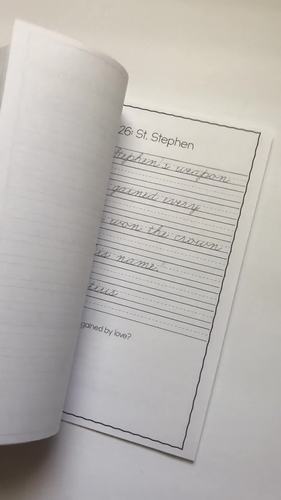 26: St. Stephen
tephen's weapon
gained every
won the crown
name."
tius
gained by love?